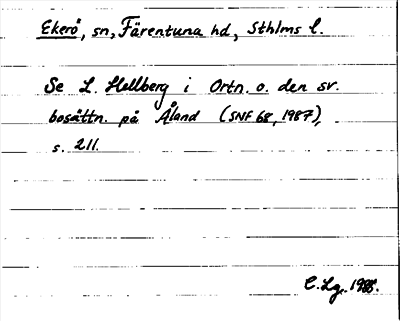 Ekerö, sn, Färentuna hd, Sthlms l.
Se L. Hellberg i Ortn. o. den sv.
bosättn. på Åland (SNF 68, 1987),
s. 211.
C. Lg. 1988.